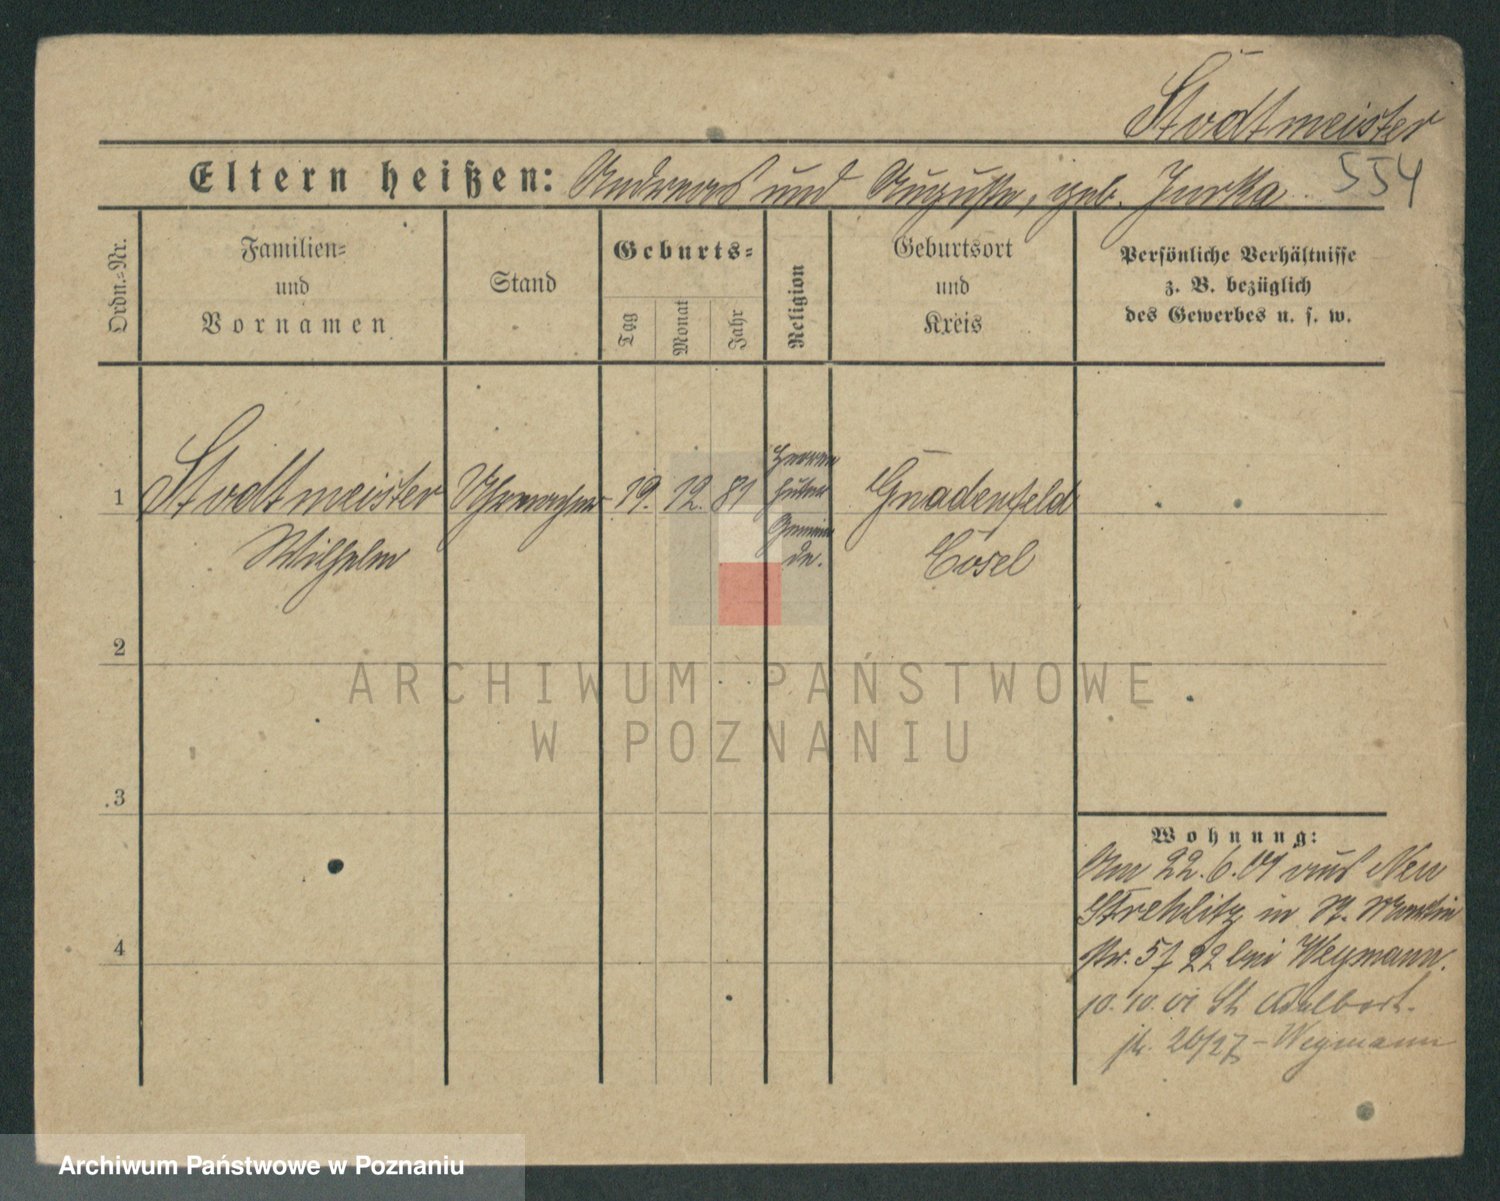 Stodtmeister
Eltern heißen: Andreas und Auguste, geb. Jurka
554
Ordn.=Nr.
Familien=
und
Vornamen
Stand
Geburts=
Tag
Monat
Jahr
Religion
Geburtsort
und
Kreis
Persönliche Verhältnisse
z. B. bezüglich
des Gewerbes u. s. w.
1
Stodtmeister
Wilhelm
Uhrmacher
19. 12. 81
Herrn
huter
Gemein
de.
Gnadenfeld
Cosel
2
3
4
Wohnung:
Am 22.6.01 aus Neu
Strehlitz in St. Martin
str. 57 22 bei Wegmann.
10.10.01 St Adalbert-
str. 26/27 - Wegmann
ARCHIWUM PAŃSTWOWE
W POZNANIU
Archiwum Państwowe w Poznaniu